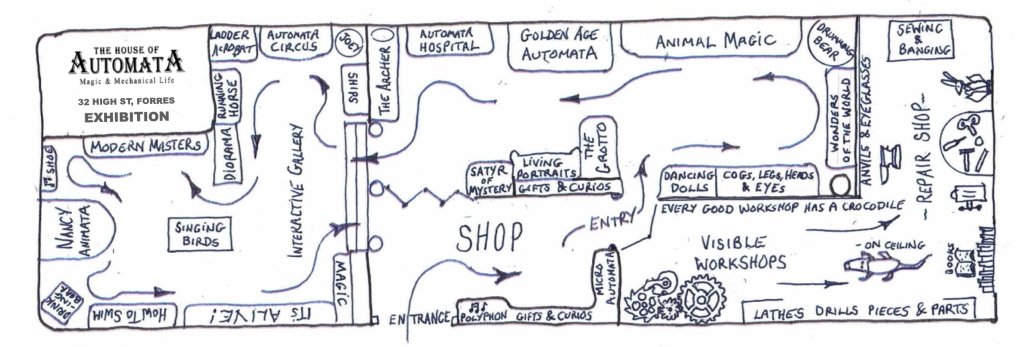 THE HOUSE OF
AUTOMATA
Magic & Mechanical Life
32 HIGH ST, FORRES
EXHIBITION
LADDER
ACROBAT
AUTOMATA
CIRCUS
JOEY
SHIPS
THE ARCHER
AUTOMATA
HOSPITAL
GOLDEN AGE
AUTOMATA
ANIMAL MAGIC
DRUMMING
BEAR
SEWING
& BANGING
RUNNING
HORSE
DIORAMA
MODERN MASTERS
SHOE
NANCY
ANIMATA
SINGING
BIRDS
INTERACTIVE GALLERY
HOW TO SWIM
IT'S ALIVE!
MAGIC
SATYR
OF
MYSTERY
LIVING
PORTRAITS
THE
GROTTO
GIFTS & CURIOS
WONDERS
OF THE WORLD
ANVILS & EYEGLASSES
- REPAIR SHOP -
DANCING
DOLLS
COGS, LEGS, HEADS
& EYES
EVERY GOOD WORKSHOP HAS A CROCODILE
ENTRY
SHOP
VISIBLE
WORKSHOPS
- ON CEILING
BOOKS
MICRO
AUTOMATA
ENTRANCE
POLYPHON
GIFTS & CURIOS
LATHES DRILLS PIECES & PARTS